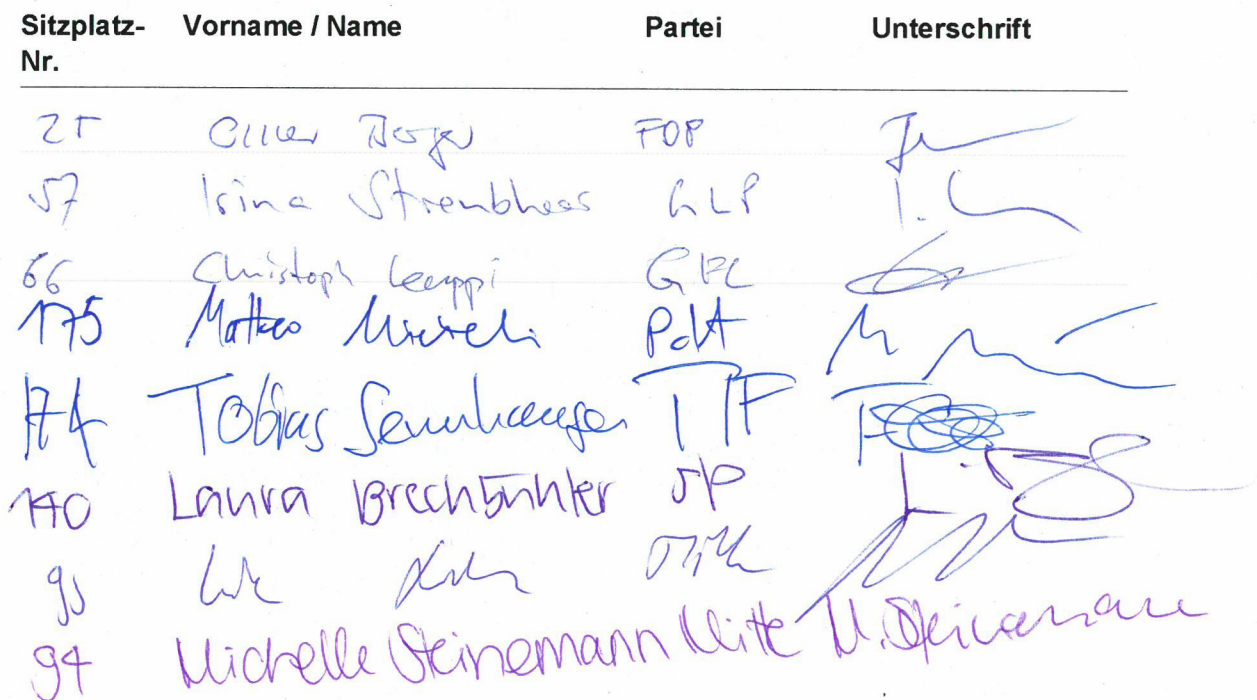 Sitzplatz- Vorname / Name Partei Unterschrift
Nr.
25 Oliver Berger FDP
57 Irina Straubhaar GLP
66 Christoph Leuppi GFL
175 Matteo Micieli PdA
174 Tobias Sennhauser TIF
170 Laura Brechbühler SP
95 Mitte
94 Michelle Steinemann Mitte M. Steinemann